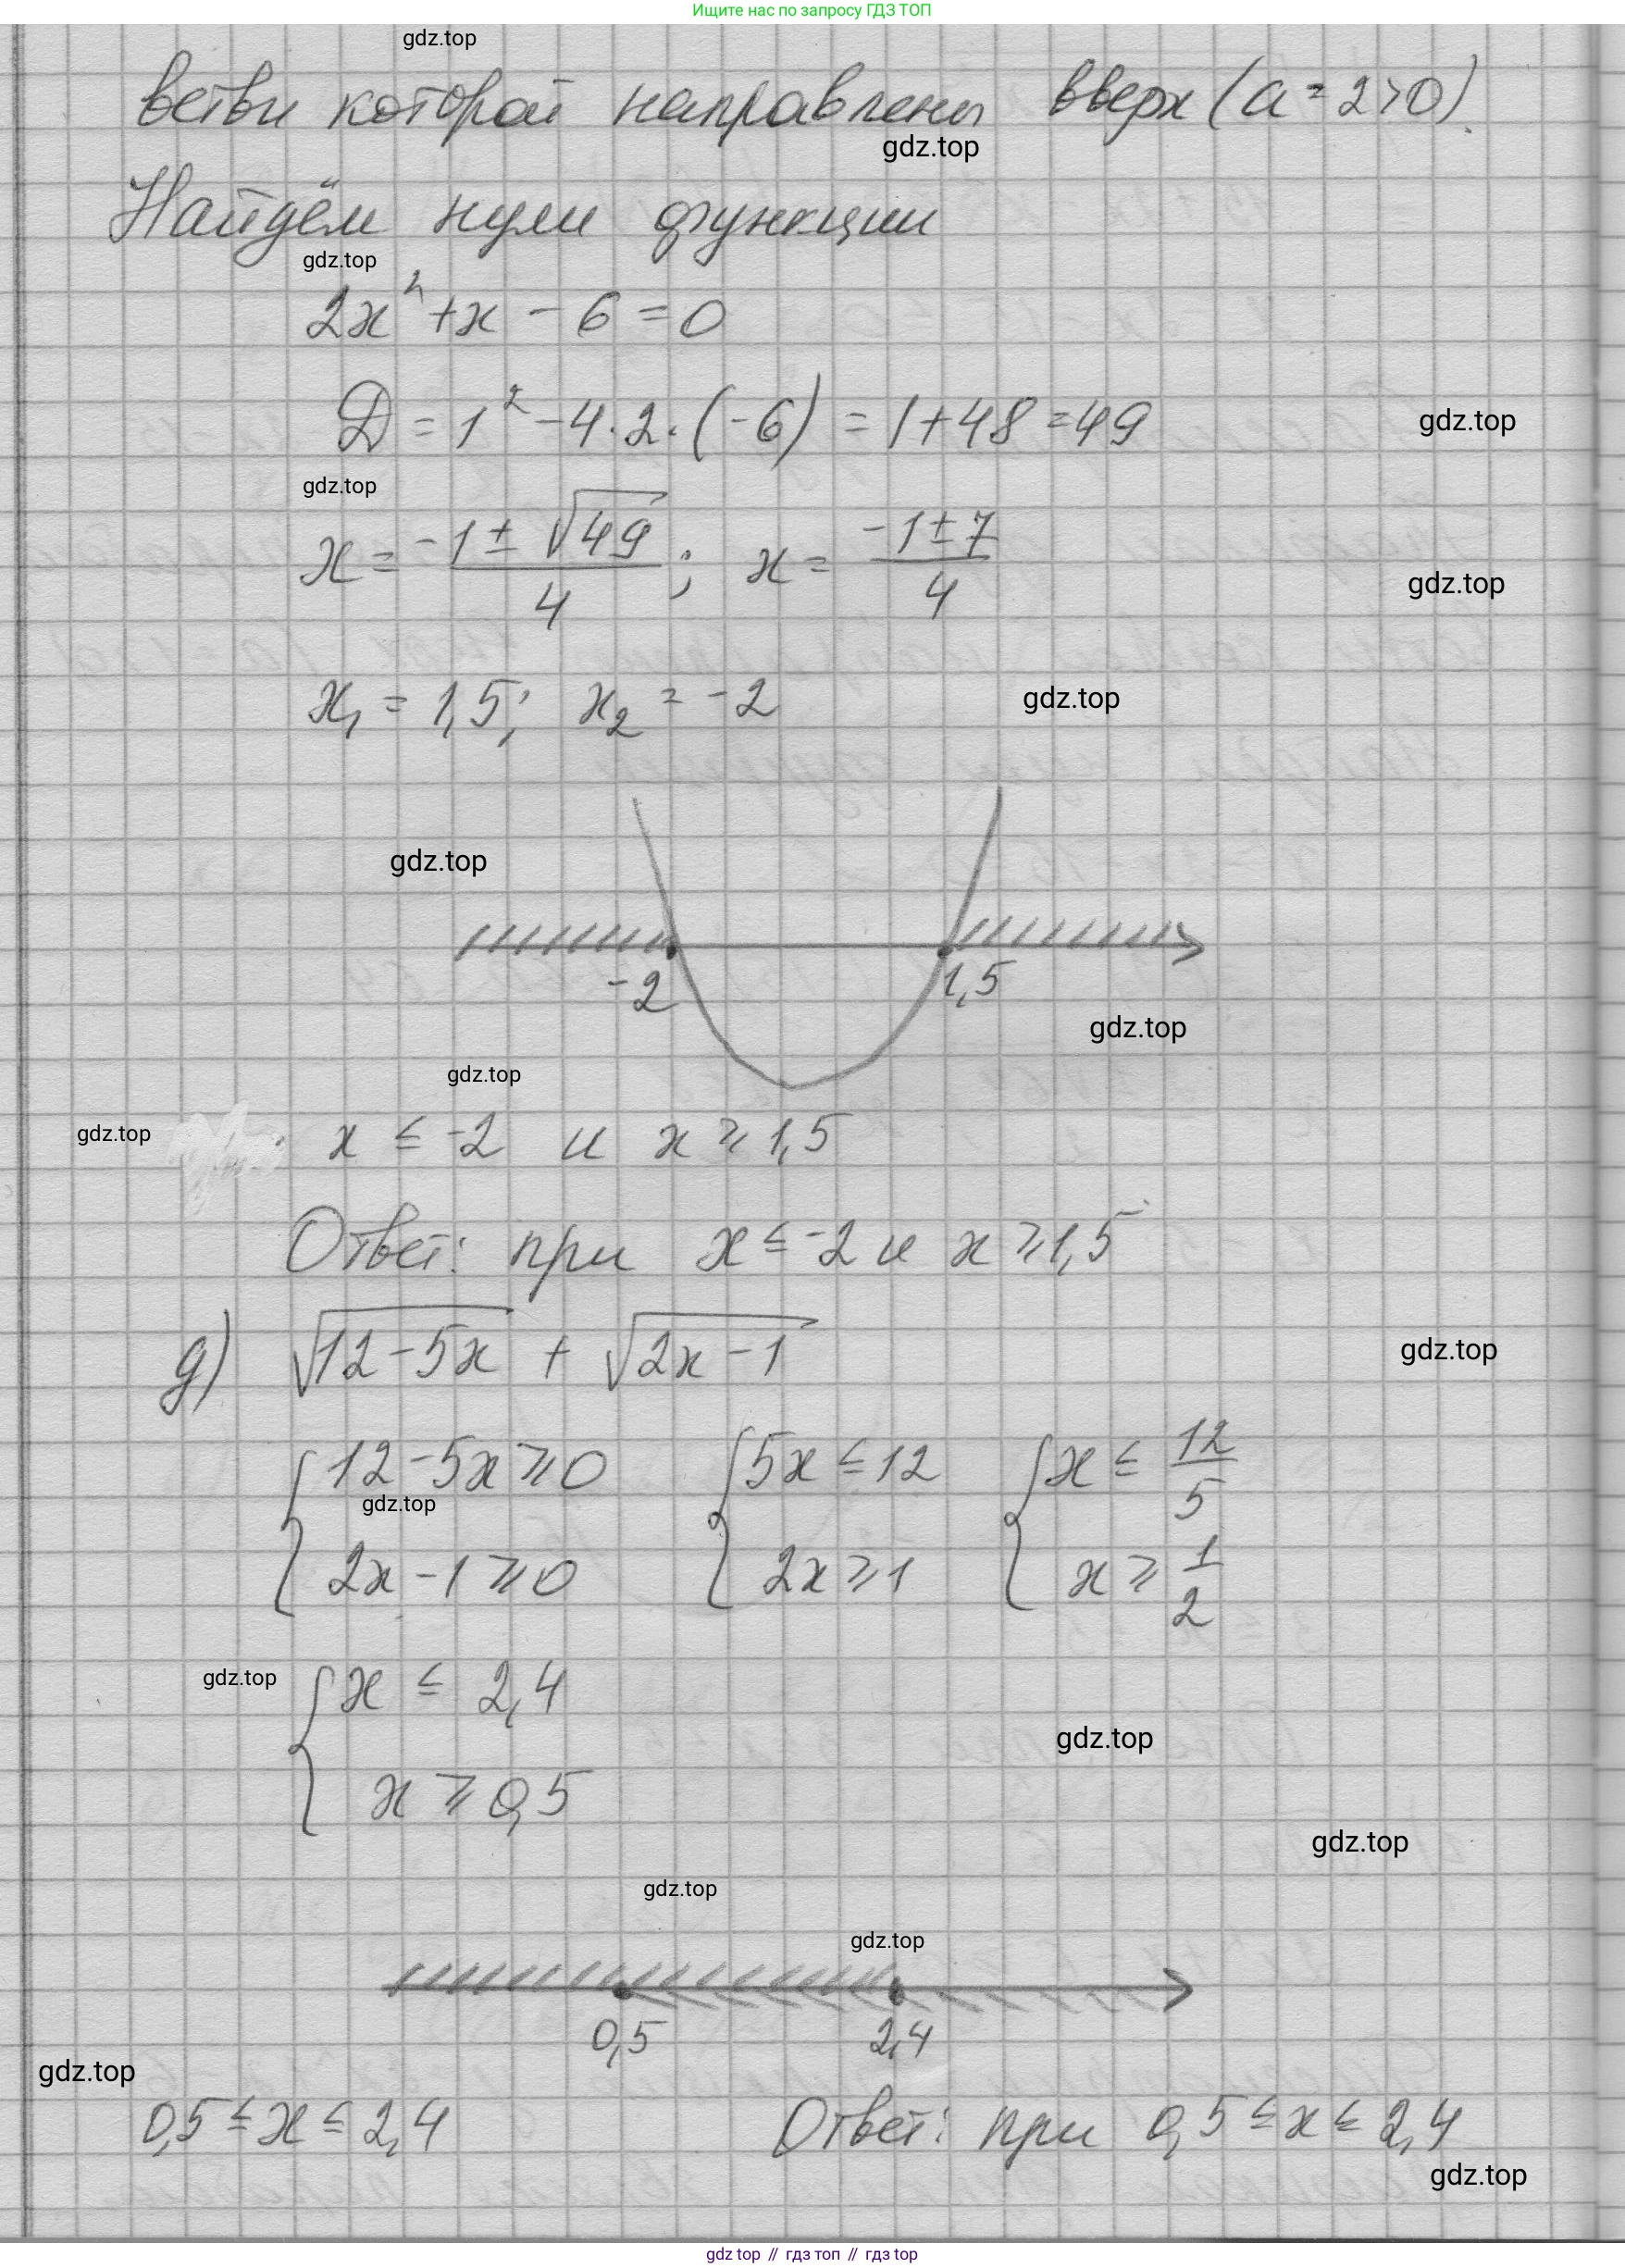 Ищите нас по запросу ГДЗ ТОП
gdz.top
ветви которой направлены вверх (a = 2 > 0).
gdz.top
Найдём нули функции
gdz.top
2x² + x - 6 = 0
D = 1² - 4·2·(-6) = 1 + 48 = 49
gdz.top
gdz.top
x = (-1 ± √49)/4; x = (-1 ± 7)/4
gdz.top
x₁ = 1,5; x₂ = -2
gdz.top
gdz.top
-2 1,5
gdz.top
gdz.top
gdz.top
x ≤ -2 и x ≥ 1,5
Ответ: при x ≤ -2 и x ≥ 1,5
д) √(12-5x) + √(2x-1)
gdz.top
{12 - 5x ≥ 0 {5x ≤ 12 {x ≤ 12/5
gdz.top
2x - 1 ≥ 0 2x ≥ 1 x ≥ 1/2
gdz.top
{x ≤ 2,4
gdz.top
x ≥ 0,5
gdz.top
gdz.top
gdz.top
0,5 2,4
gdz.top
0,5 ≤ x ≤ 2,4 Ответ: при 0,5 ≤ x ≤ 2,4
gdz.top
gdz top // гдз топ // гдз top